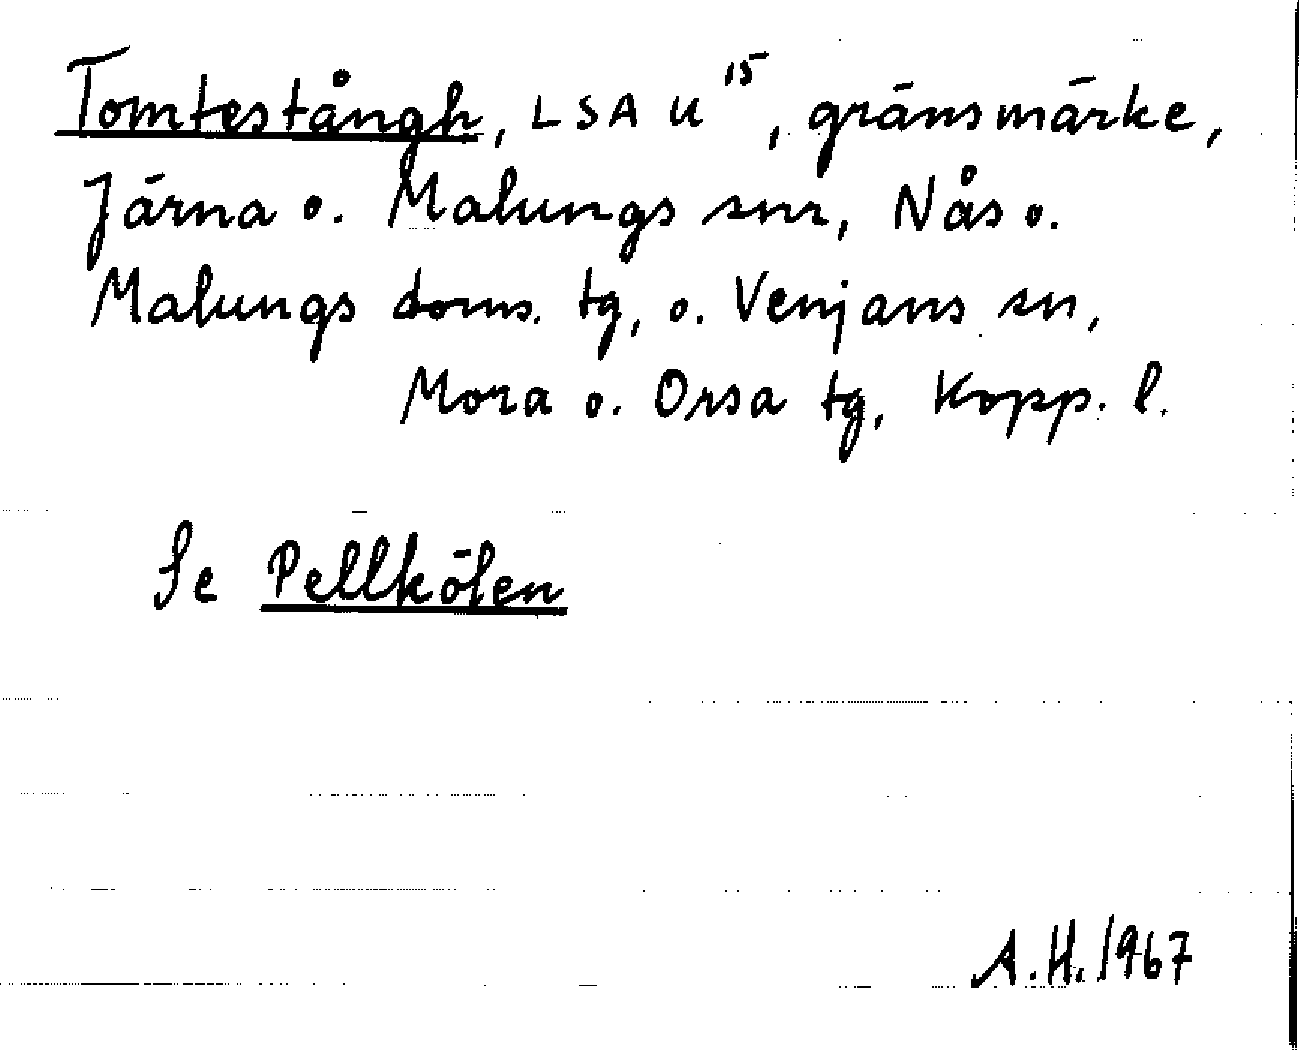 Tomtestångh, LSA U 15, gränsmärke,
Järna o. Malungs snr, Nås o.
Malungs doms. tg, o. Venjans sn,
Mora o. Orsa tg, Kopp. l.
Se Pellkölen
A.H. 1967